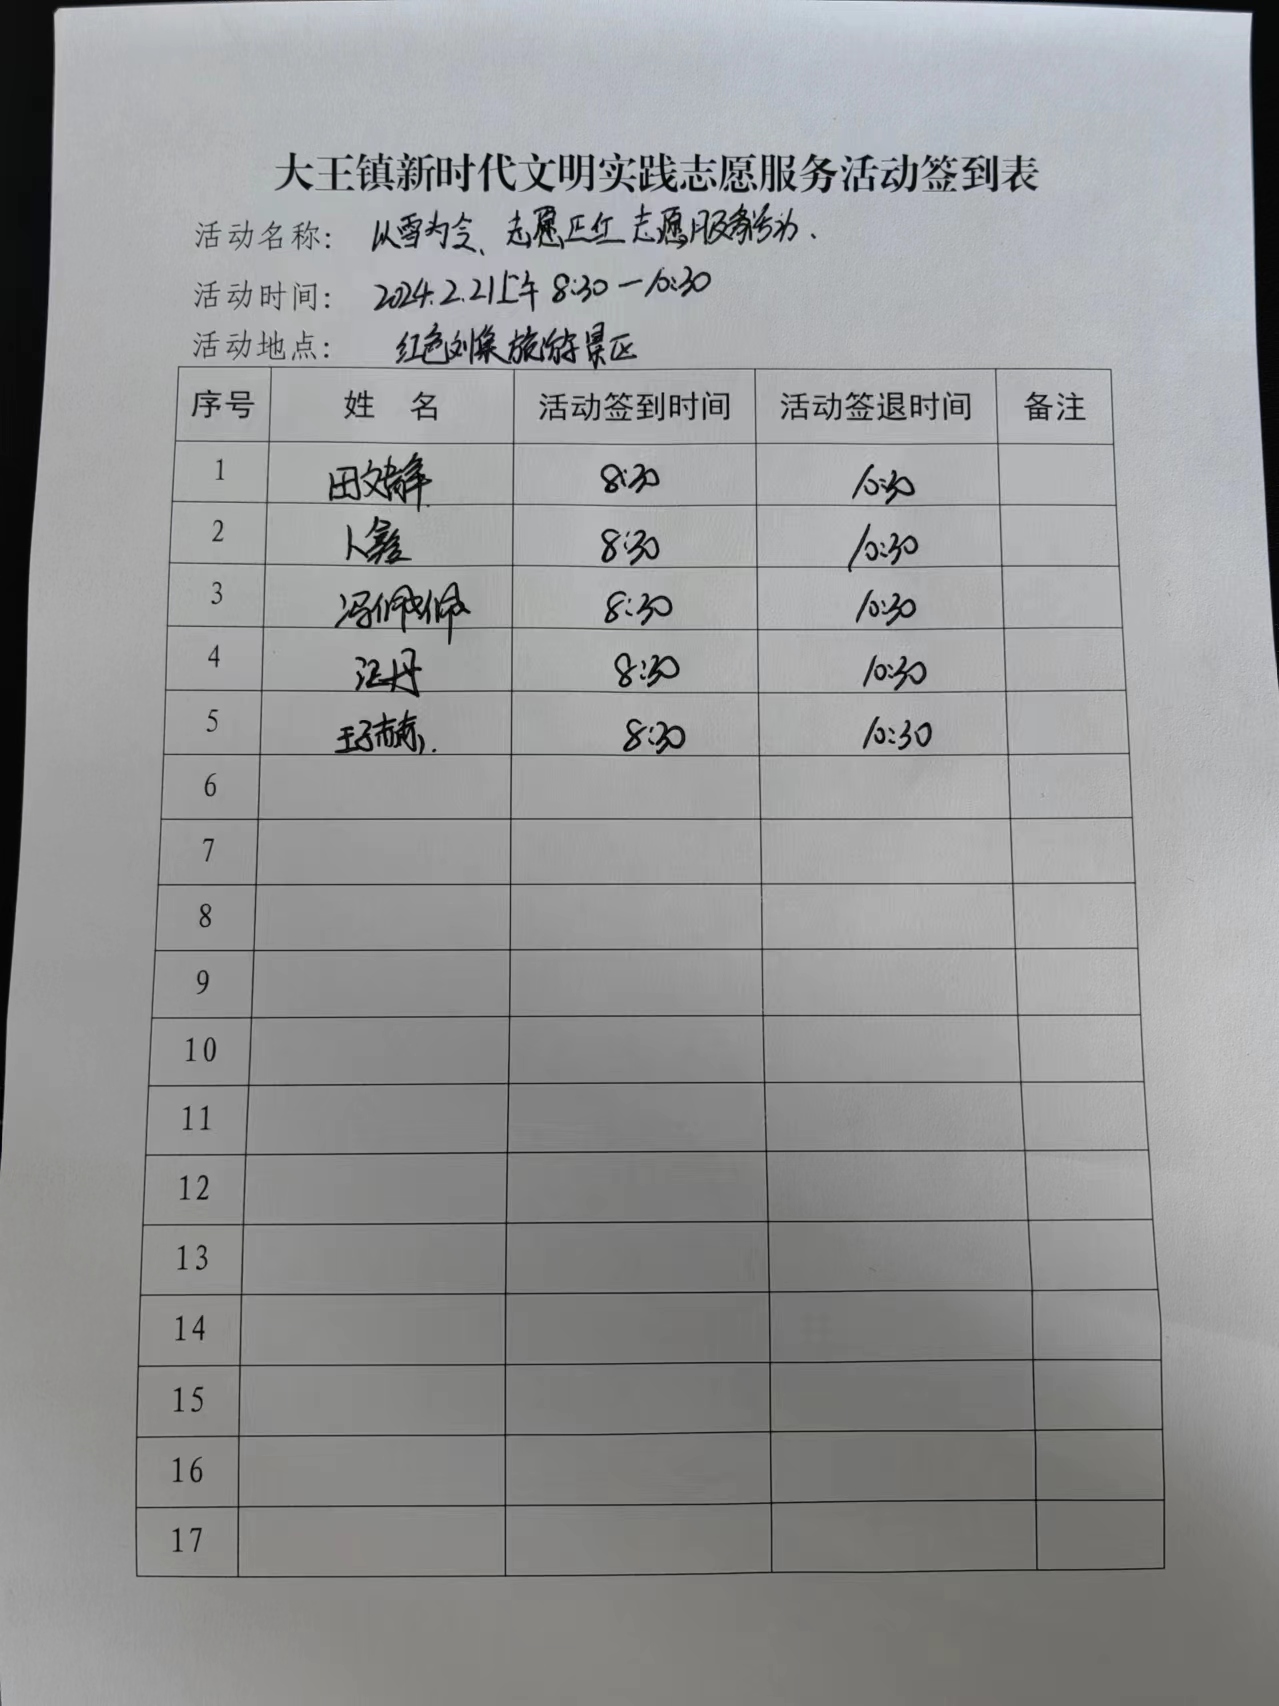 大王镇新时代文明实践志愿服务活动签到表
活动名称: 以雪为令、志愿正红 志愿服务活动.
活动时间: 2024.2.21上午 8:30—10:30
活动地点: 红色刘集旅游景区
序号 姓 名 活动签到时间 活动签退时间 备注
1 田文静 8:30 10:30
2 8:30 10:30
3 冯佩佩 8:30 10:30
4 江丹 8:30 10:30
5 8:30 10:30
6
7
8
9
10
11
12
13
14
15
16
17